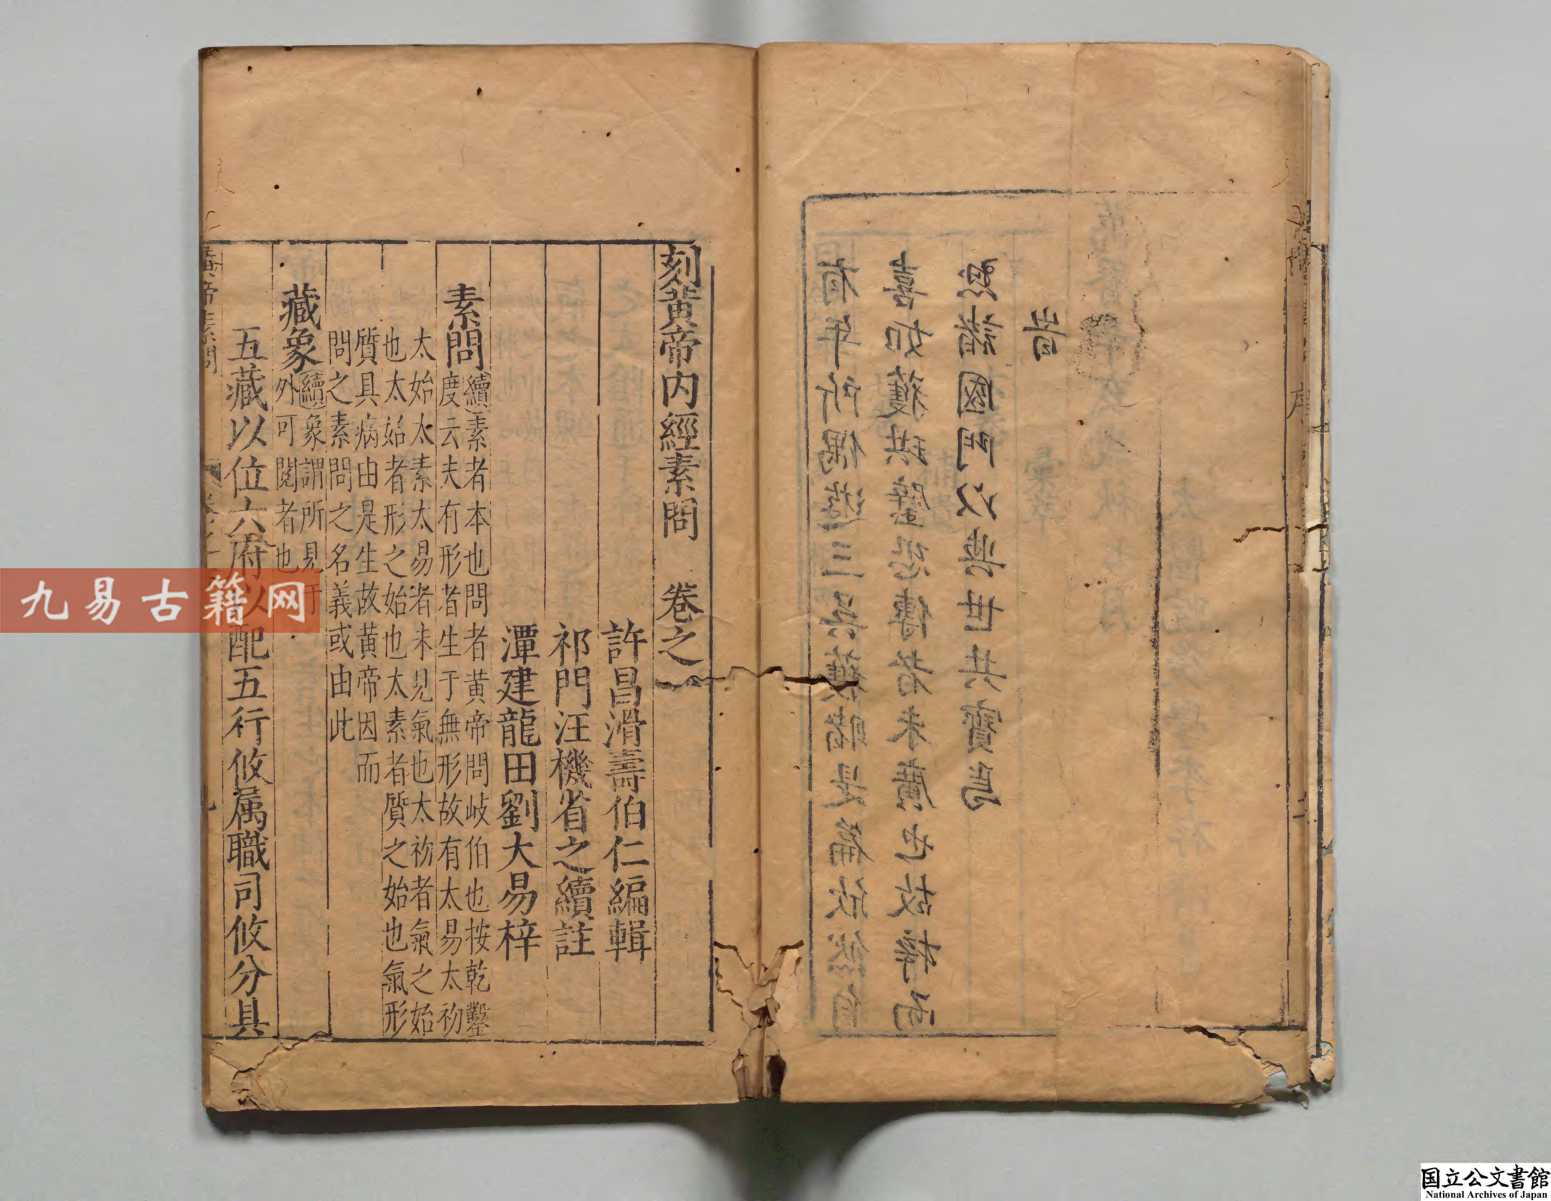 有年所偶遊三吳獲睹是篇欣然自
喜如獲珙璧恐傳者未廣也故梓而
懸諸國門以與世共寶焉
旹
刻黃帝內經素問 卷之一
許昌滑壽伯仁編輯
祁門汪機省之續註
潭建龍田劉大易梓
素問 續素者本也問者黃帝問岐伯也按乾鑿
度云夫有形者生于無形故有太易太礽
太始太素太易者未見氣也太礽者氣之始
也太始者形之始也太素者質之始也氣形
質具病由是生故黃帝因而
問之素問之名義或由此
藏象 續象謂所見于
外可閱者也
五藏以位六府以配五行攸属職司攸分具
九易古籍网
国立公文書館
National Archives of Japan